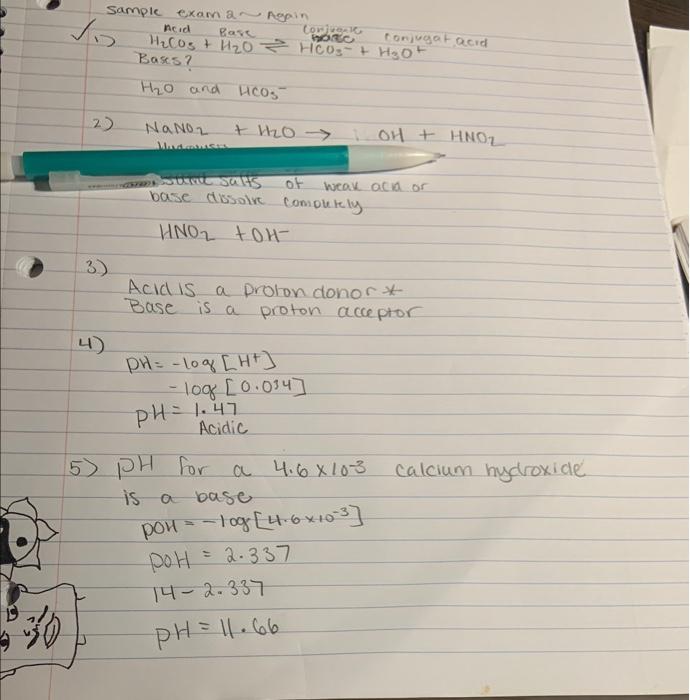 sample exam 2~ Again
Acid Base Conjugate base conjugat acid
1) H₂CO₃ + H₂O ⇌ HCO₃⁻ + H₃O⁺
Bases?
H₂O and HCO₃⁻
2) NaNO₂ + H₂O → OH + HNO₂
salts of weak acid or
base dissolve completely
HNO₂ + OH⁻
3)
Acid is a proton donor *
Base is a proton acceptor
4)
pH = -log [H⁺]
-log [0.034]
pH = 1.47
Acidic
5) pH for a 4.6 x 10⁻³ calcium hydroxide
is a base
pOH = -log [4.6 x 10⁻³]
pOH = 2.337
14 - 2.337
pH = 11.66